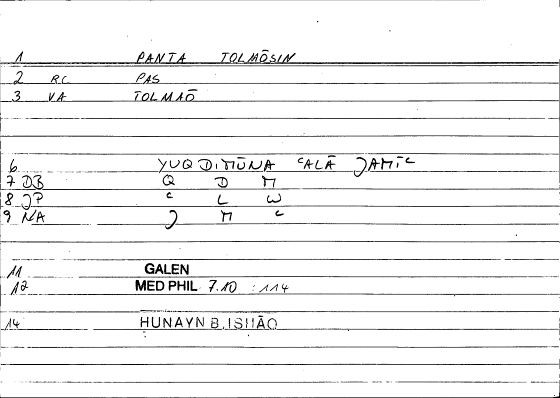 1 PANTA TOLMŌSIN
2 RC PAS
3 VA TOLMAŌ
6 YUQDIMŪNA ʿALĀ JAMĪʿ
7 DB Q D M
8 JP ʿ L W
9 NA J M ʿ
11 GALEN
12 MED PHIL 7.10 :114
14 HUNAYN B.ISHĀQ